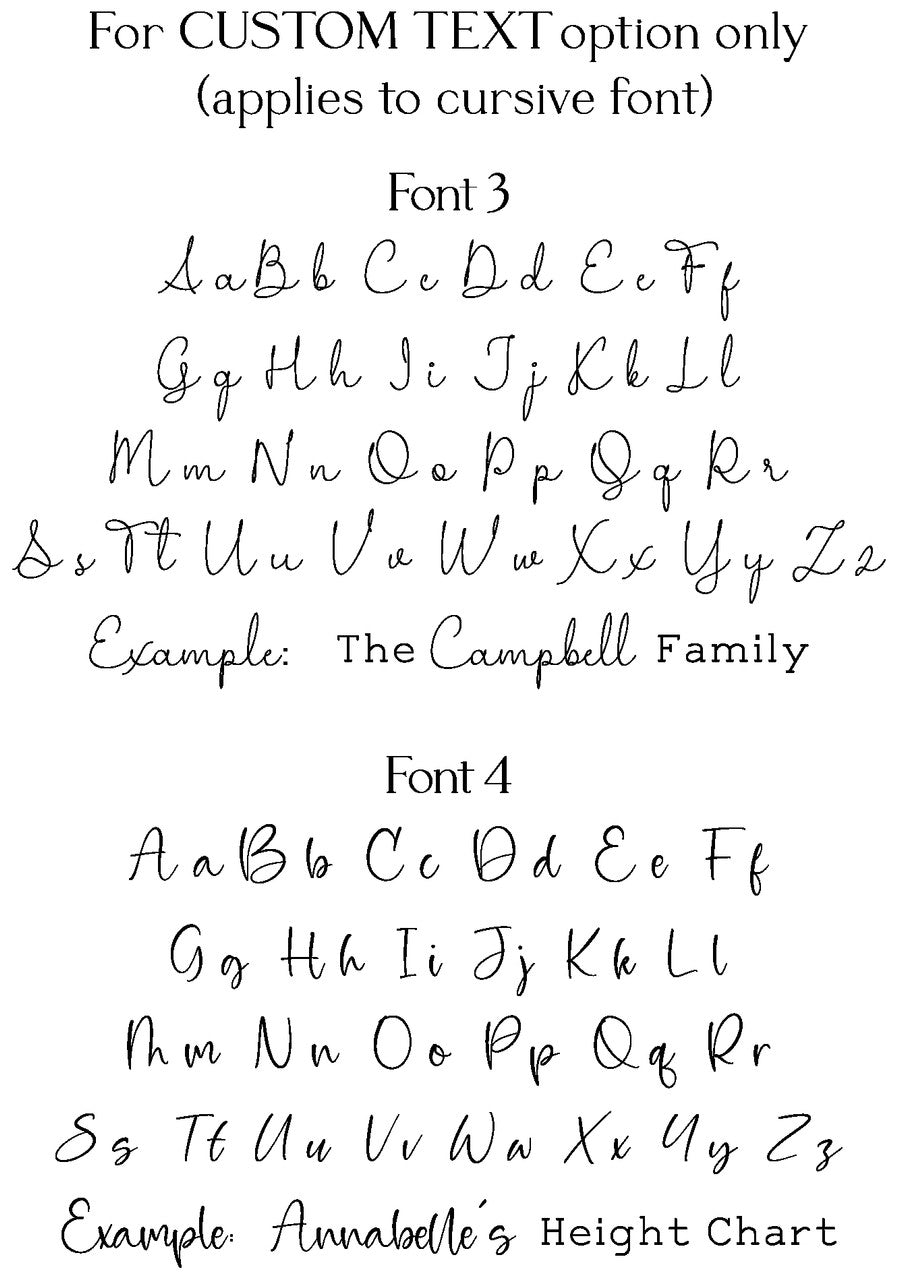 For CUSTOM TEXT option only
(applies to cursive font)
Font 3
A a B b C c D d E e F f
G g H h I i J j K k L l
M m N n O o P p Q q R r
S s T t U u V v W w X x Y y Z z
Example: The Campbell Family
Font 4
A a B b C c D d E e F f
G g H h I i J j K k L l
M m N n O o P p Q q R r
S s T t U u V v W w X x Y y Z z
Example: Annabelle's Height Chart